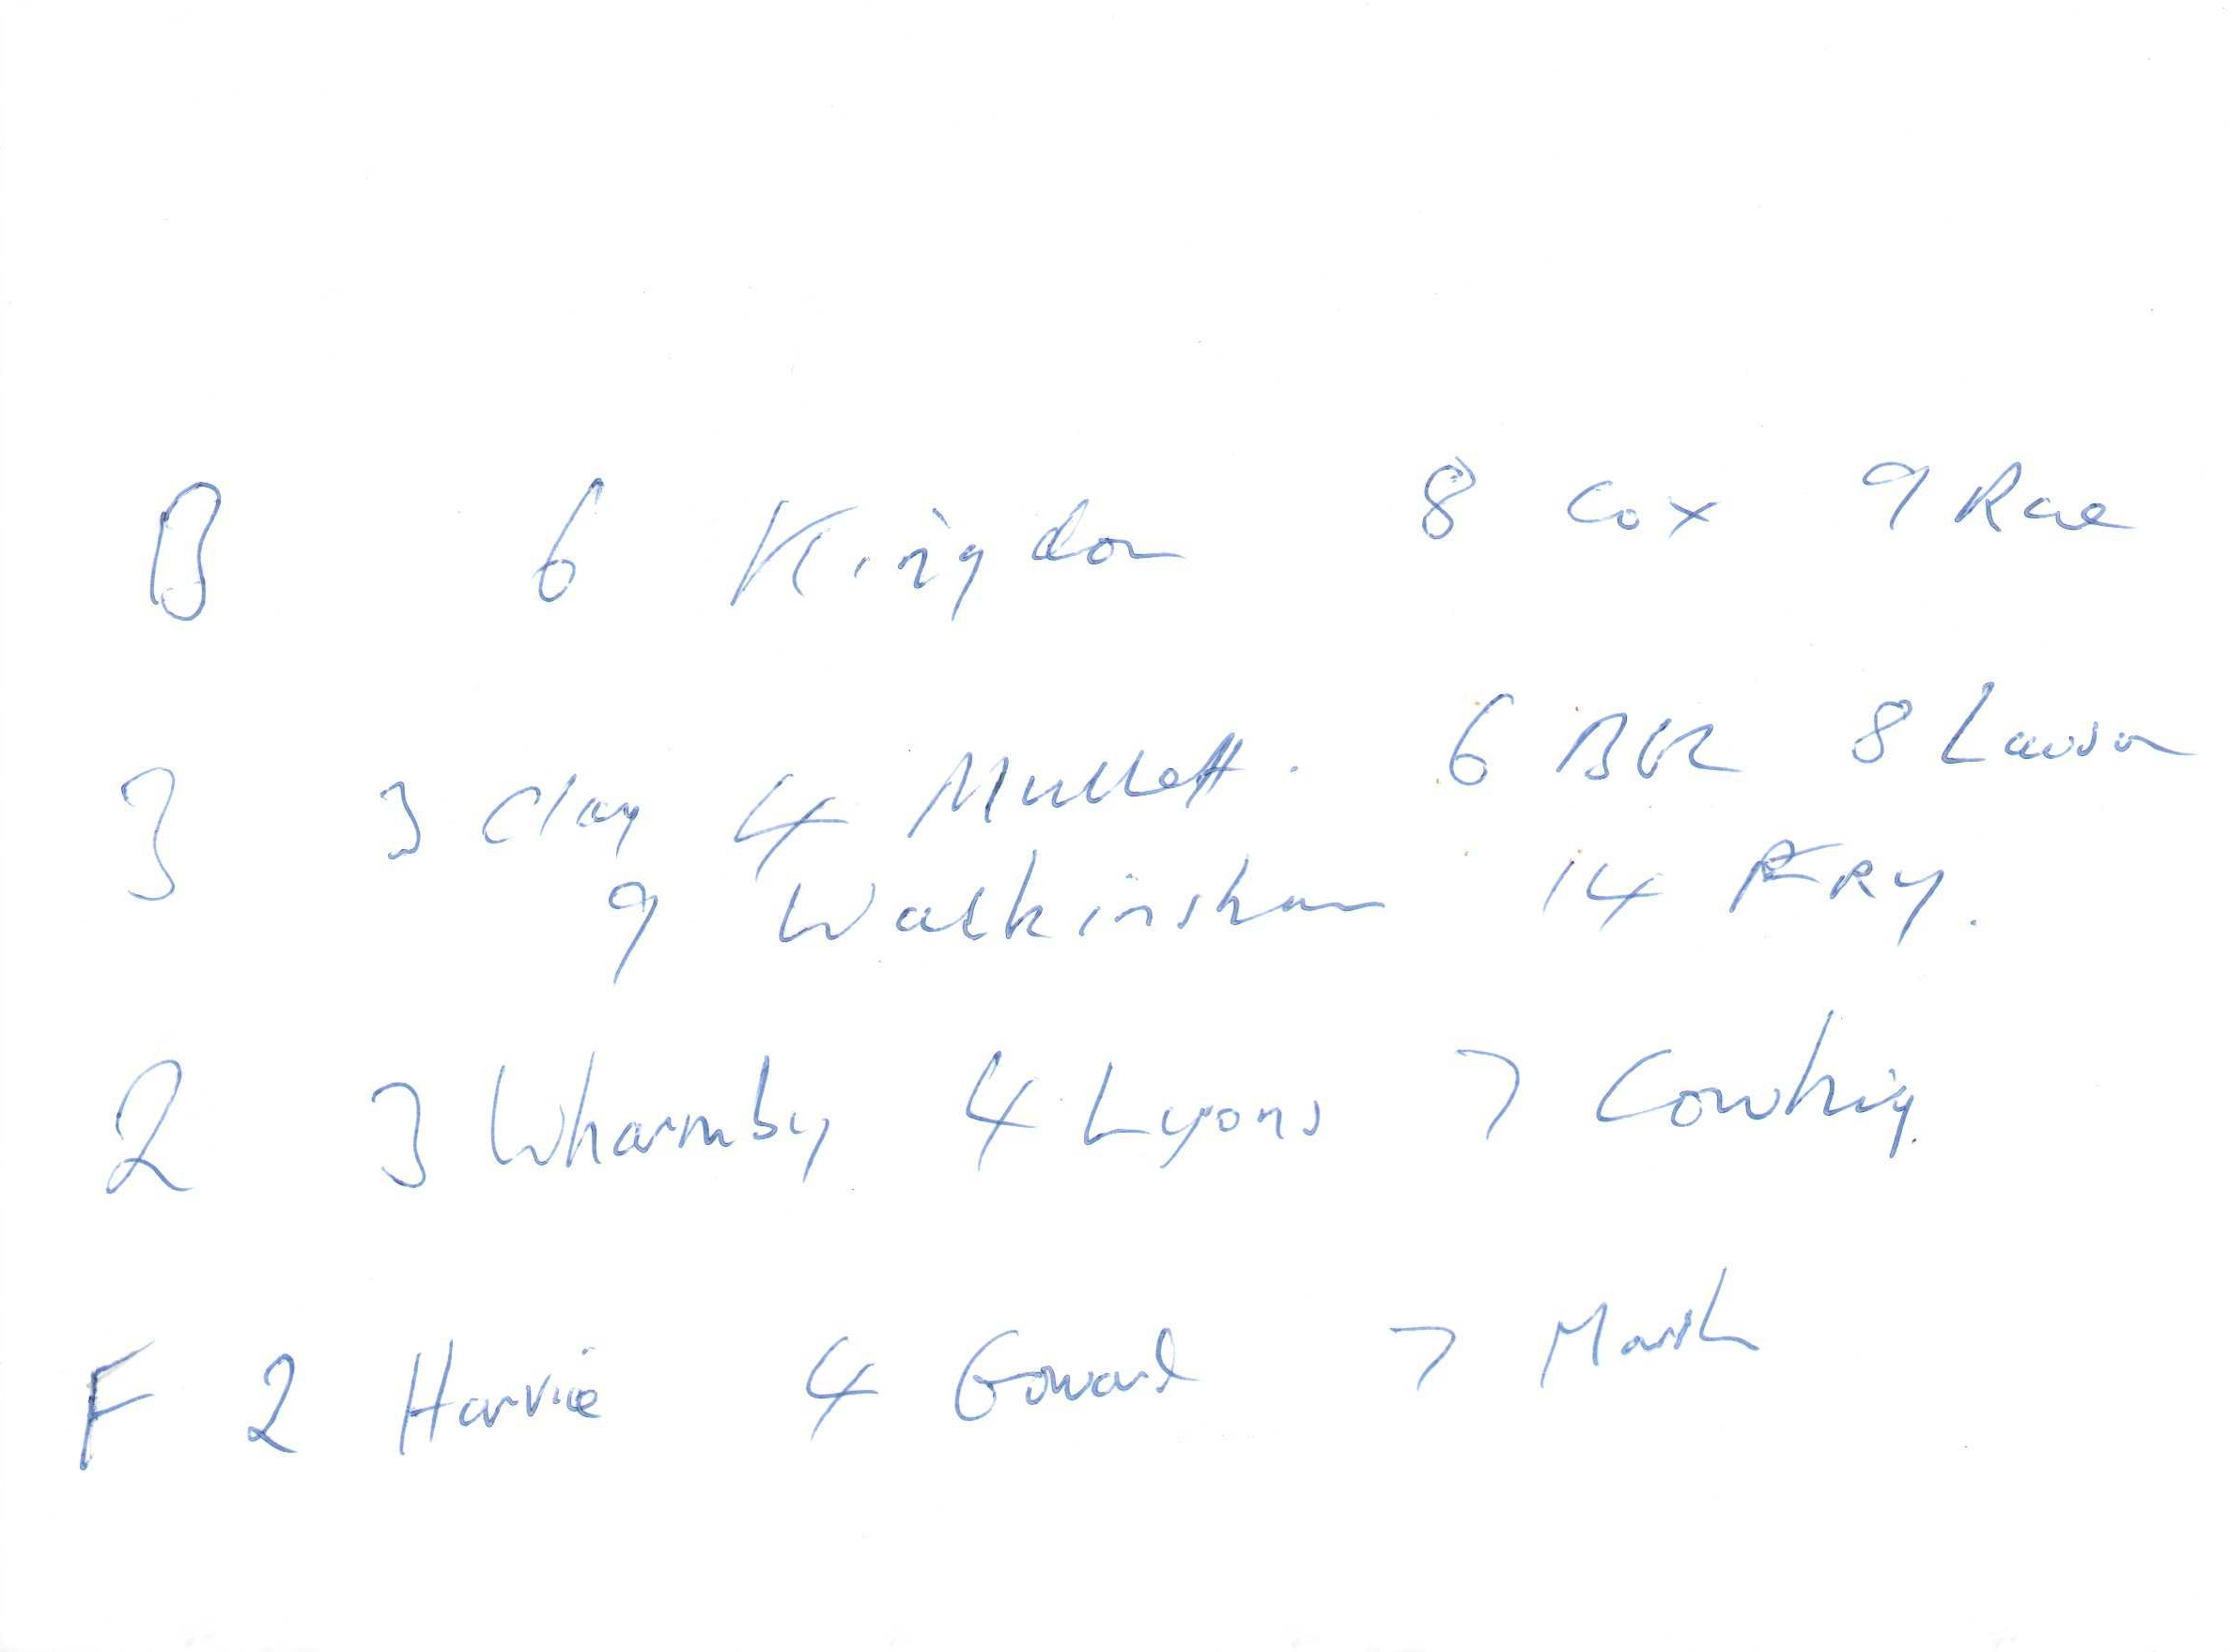 B 6 Kingdon 8 Cox 9 Rae
3 3 Clay 4 Mullett. 6 BVR 8 Lawson
9 Walkinshaw 14 FRY.
2 3 Wharmby 4 Lyons 7 Cowhig.
F 2 Harvie 4 Goward 7 Marsh